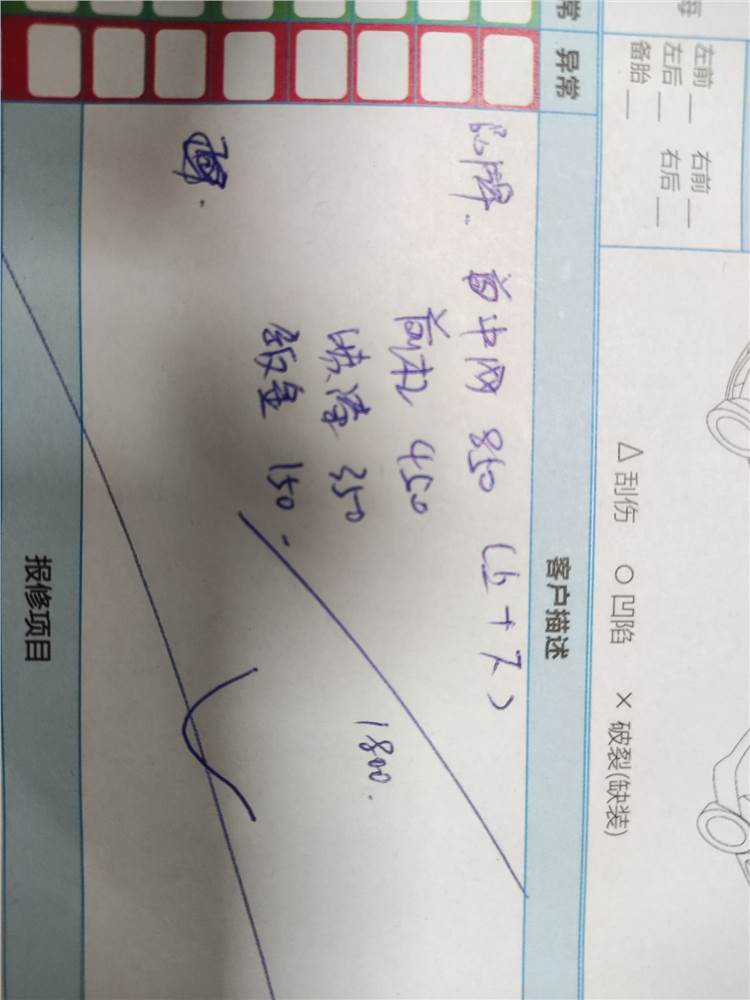 常
异常
每
左前＿ 右前＿
左后＿ 右后＿
备胎＿
△ 刮伤 ○ 凹陷 × 破裂(缺装)
客户描述
品牌. 前中网 850 (上+下)
前杠 450
喷漆 350
钣金 150.
1800.
报修项目